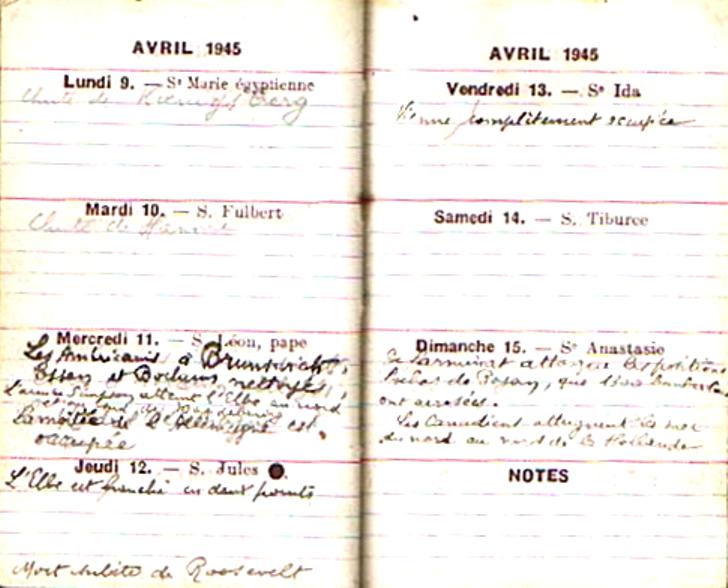 AVRIL 1945
Lundi 9. — Sᵉ Marie égyptienne
Chute de Kœnigsberg
Mardi 10. — S. Fulbert
Chute de
Mercredi 11. — S. Léon, pape
Les Américains à Brunswick.
Essen et Bochum nettoyés,
L'armée Simpson atteint l'Elbe au nord
La moitié de l'Allemagne est
occupée
Jeudi 12. — S. Jules
L'Elbe est franchi en deux points
Mort subite de Roosevelt
AVRIL 1945
Vendredi 13. — Sᵉ Ida
Vienne complètement occupée
Samedi 14. — S. Tiburce
Dimanche 15. — Sᵉ Anastasie
de Larminat attaque les positions
de Royan, que
ont arrosées.
Les Canadiens atteignent la mer
du nord au nord de la Hollande
NOTES